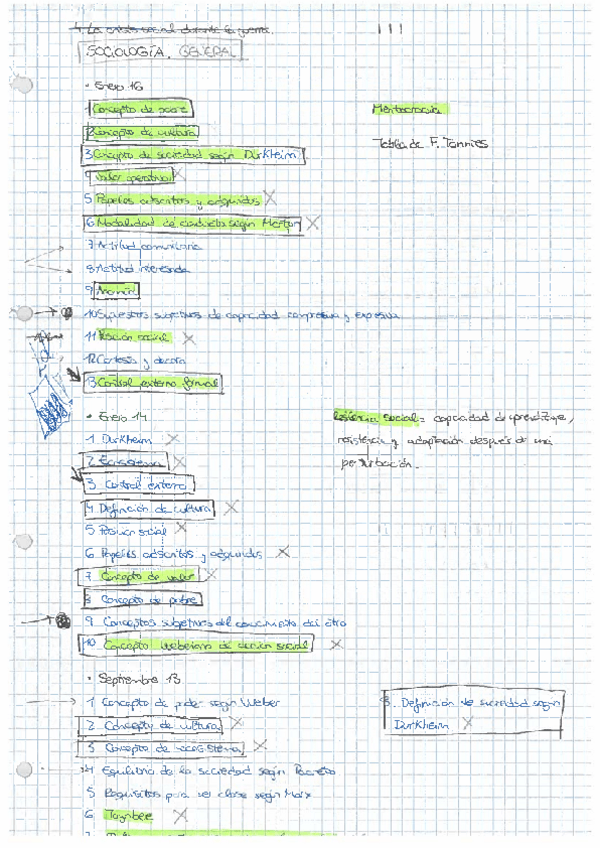 SOCIOLOGÍA. GENERAL
• Enero 16
1 Concepto de
2 Concepto de cultura
3 Concepto de sociedad según Durkheim
4 Valor operativo
5 Papeles adscritos y adquiridos
6 Modalidad de conducta según Merton
7 Actitud comunitaria
8 Actitud
9 Anomia
10 Supuestos subjetivos de capacidad compresiva y expresiva
11 Posición social
12 Cortesía y decoro
13 Control externo formal
Meritocracia
Tabla de F. Tonnies
• Enero 14
1 Durkheim
2 Ecosistema
3 Control externo
4 Definición de cultura
5 Posición social
6 Papeles adscritos y adquiridos
7 Concepto de valor
8 Concepto de pobre
9 Conceptos subjetivos del conocimiento del otro
10 Concepto weberiano de acción social
Resiliencia social = capacidad de aprendizaje,
resistencia y adaptación después de una
perturbación.
• Septiembre 13
1 Concepto de poder según Weber
2 Concepto de cultura
3 Concepto de ecosistema
4 Equilibrio de la sociedad según Pareto
5 Requisitos para ser clase según Marx
6 Toynbee
8. Definición de sociedad según
Durkheim